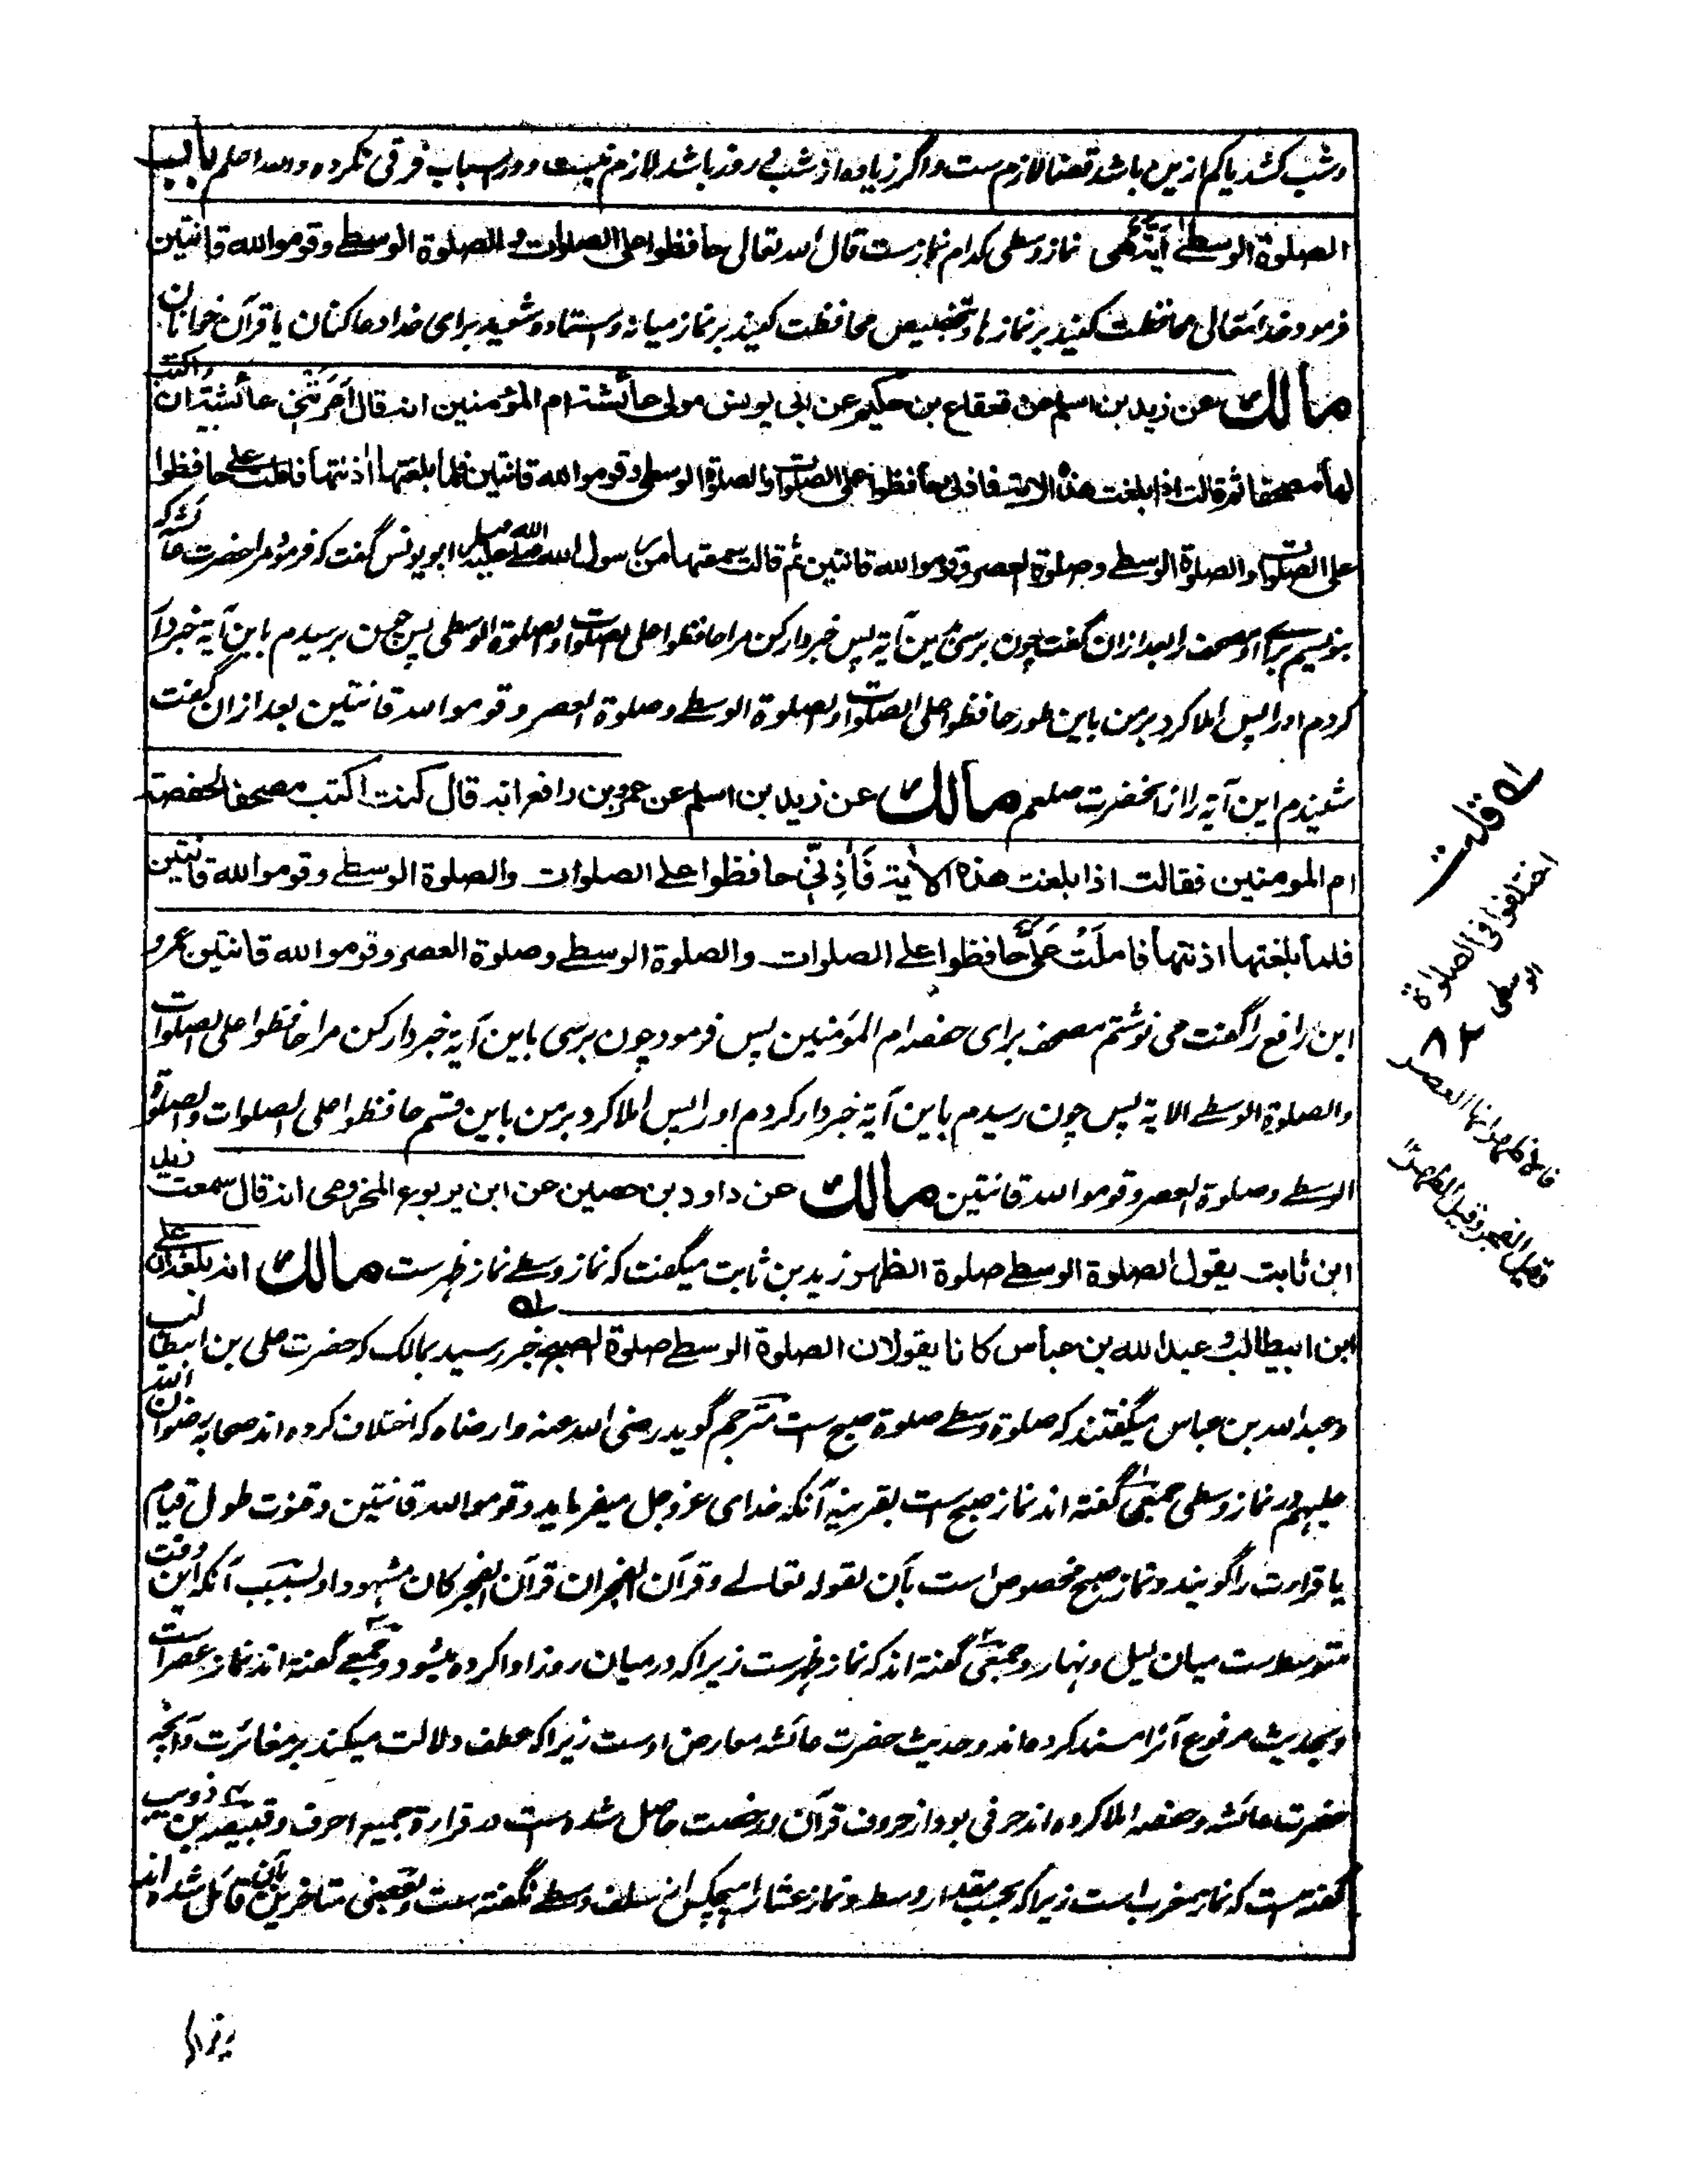 وشب کشد یا کم ازین باشد قضا لازم ست واگر زیاده از شب بے روز باشد لازم نیست ودر اسباب فرقی نکرده والله اعلم باب
الصلوة الوسطے ایتهی نماز وسطی کدام نمازست قال الله تعالی حافظوا علی الصلوات والصلوة الوسطے وقوموا لله قانتین
فرمود خدایتعالی محافظت کنید بر نماز ها وتخصیص محافظت کنید بر نماز میانه واستاده شوید برای خدا دعا کنان یا قرآن خوانان
مالك عن زید بن اسلم عن قعقاع بن حکیم عن ابی یونس مولی عائشة ام المؤمنین انه قال امرتنی عائشة ان اکتب
لها مصحفا ثم قالت اذا بلغت هذه الایة فاذنی حافظوا علی الصلوات والصلوة الوسطی وقوموا لله قانتین فلما بلغتها اذنتها فاملت علی حافظوا
علی الصلوات والصلوة الوسطے وصلوة العصر وقوموا لله قانتین ثم قالت سمعتها من رسول الله صلے الله علیه وسلم ابو یونس گفت که فرمود مرا حضرت عائشه که
بنویسم برای او مصحف را بعد ازان گفت چون برسی باین آیة پس خبردار کن مرا حافظوا علی الصلوات والصلوة الوسطی پس چون برسیدم باین آیة خبردار
کردم او را پس املا کرد برمن باین طور حافظوا علی الصلوات والصلوة الوسطے وصلوة العصر وقوموا لله قانتین بعد ازان گفت
شنیدم این آیة را از آنحضرت صلعم مالك عن زید بن اسلم عن عمرو بن رافع انه قال کنت اکتب مصحفا لحفصة
ام المومنین فقالت اذا بلغت هذه الایة فَآذِنِّی حافظوا علے الصلوات والصلوة الوسطے وقوموا لله قانتین
فلما بلغتها اذنتها فاملَتْ عَلَیَّ حافظوا علے الصلوات والصلوة الوسطے وصلوة العصر وقوموا لله قانتین عمرو
ابن رافع را گفت می نوشتم مصحف برای حفصه ام المؤمنین پس فرمود چون برسی باین آیة خبردار کن مرا حافظوا علی الصلوات
والصلوة الوسطے الایة پس چون رسیدم باین آیة خبردار کردم او را پس املا کرد برمن باین قسم حافظوا علی الصلوات والصلوة
الوسطے وصلوة العصر وقوموا لله قانتین مالك عن داود بن حصین عن ابن یربوع المخزومی انه قال سمعت زید
ابن ثابت یقول الصلوة الوسطے صلوة الظهر زید بن ثابت میگفت که نماز وسطے نماز ظهرست مالك انه بلغه ان علے
ابن ابیطالب و عبد الله بن عباس کانا یقولان الصلوة الوسطے صلوة الصبح خبر رسید بمالک که حضرت علی بن ابیطالب
وعبد الله بن عباس میگفتند که صلوة وسطے صلوة صبح است مترجم گوید رضی الله عنه وارضاه که اختلاف کرده اند صحابه رضوان الله
علیهم در نماز وسطی جمعی گفته اند نماز صبح ست بقرینه آنکه خدای عزوجل میفرماید وقوموا لله قانتین وقنوت طول قیام
یا قراءت را گویند ونماز صبح مخصوص است بآن لقوله تعالے وقرآن الفجر ان قرآن الفجر کان مشهودا وبسبب آنکه این وقت
متوسط ست میان لیل ونهار وجمعی گفته اند که نماز ظهرست زیرا که درمیان روز ادا کرده میشود وجمعے گفته اند نماز عصر است
وبحدیث مرفوع آنرا مسند کرده اند وحدیث حضرت عائشه معارض اوست زیرا که عطف دلالت میکند بر مغائرت وآنچه
حضرت عائشه وحفصه املا کرده اند حرفی بود از حروف قرآن ورخصت حاصل شده است در قراءة جمیع احرف وقبیصه بن ذویب
گفته ست که نماز مغرب است زیرا که بحسب مقدار وسط ونماز عشا را هیچکس از سلف وسطے نگفته ست وبعضی متاخرین بآن قائل شده اند
له قلت
اختلفوا فی الصلوة
الوسطی
۸۲
فالاکثر انها العصر
وقیل الفجر وقیل الظهر